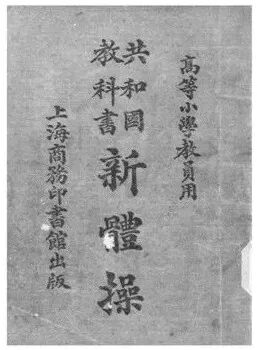 高等小學教員用
共和國
教科書
新體操
上海商務印書館出版